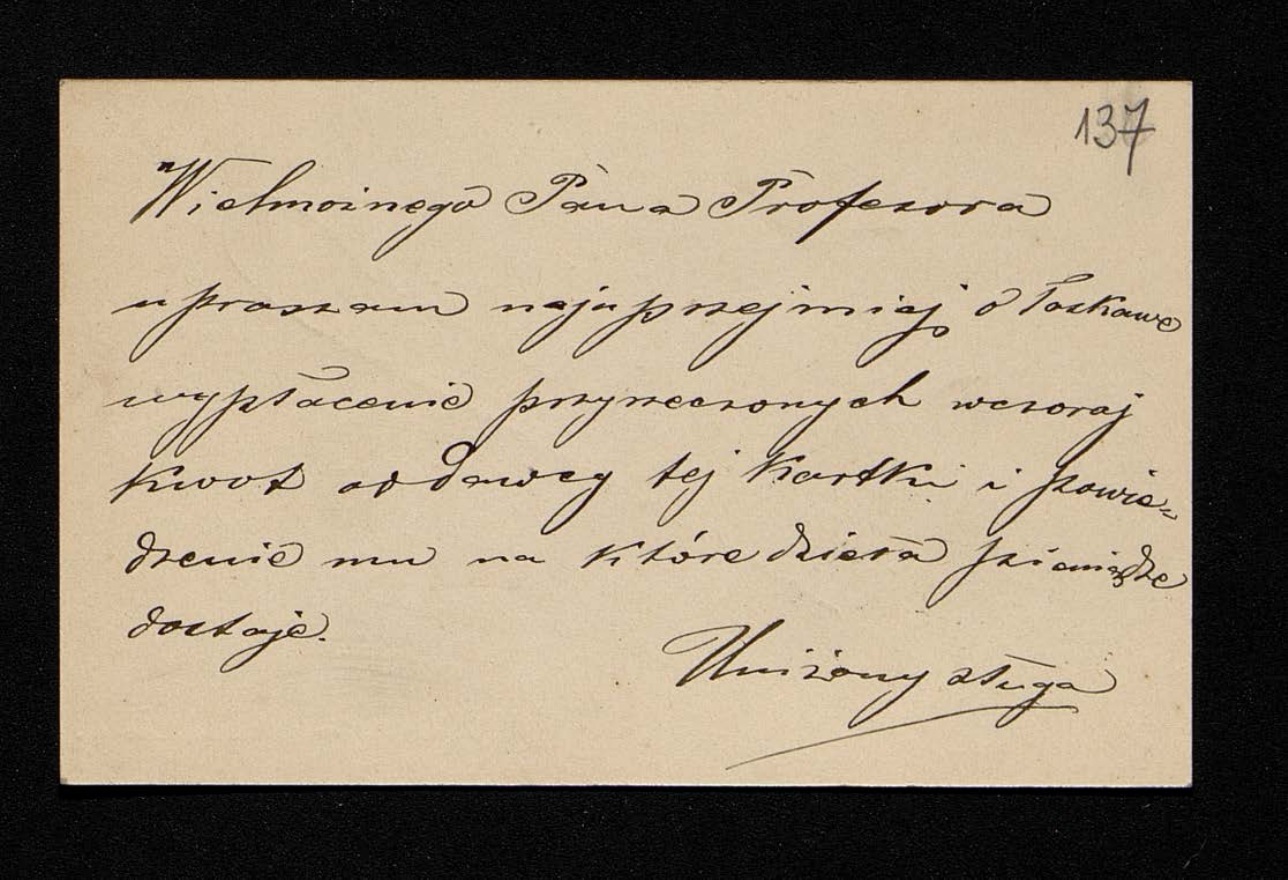 137
Wielmożnego Pana Profesora
upraszam najuprzejmiej o łaskawe
wypłacenie przyrzeczonych wczoraj
kwot oddawcy tej kartki i powie=
dzenie mu na które dzieła pieniądze
dostaje.
Uniżony sługa